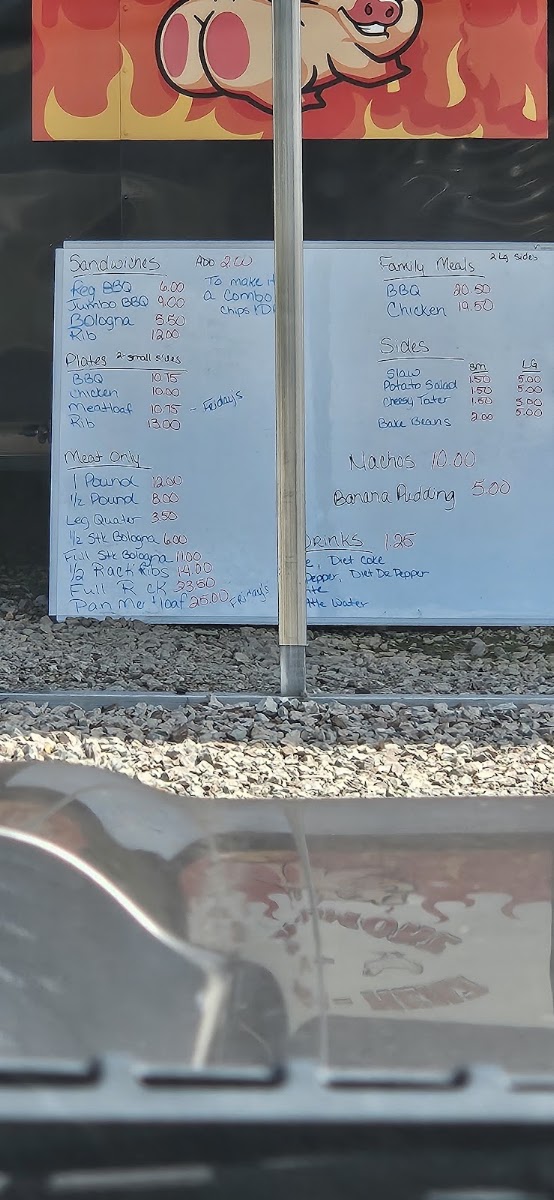 Sandwiches ADD 2.00
Reg BBQ 6.00 To make it
Jumbo BBQ 9.00 a Combo
Bologna 5.50 chips &
Rib 12.00
Plates 2-small sides
BBQ 10.75
Chicken 10.00
Meatloaf 10.75 - Friday's
Rib 13.00
Meat Only
1 Pound 12.00
1/2 Pound 8.00
Leg Quater 3.50
1/2 Stk Bologna 6.00
Full Stk Bologna 11.00
1/2 Rack Ribs 14.00
Full R ck 23.50
Pan Me t loaf 25.00 Friday's
Family Meals 2 Lg sides
BBQ 20.50
Chicken 19.50
Sides sm LG
Slaw 1.50 5.00
Potato Salad 1.50 5.00
Cheesy Tater 1.50 5.00
Bake Beans 2.00 5.00
Nachos 10.00
Banana Pudding 5.00
DRINKS 1.25
e, Diet Coke
Pepper, Diet Dr Pepper
ite
ttle Water